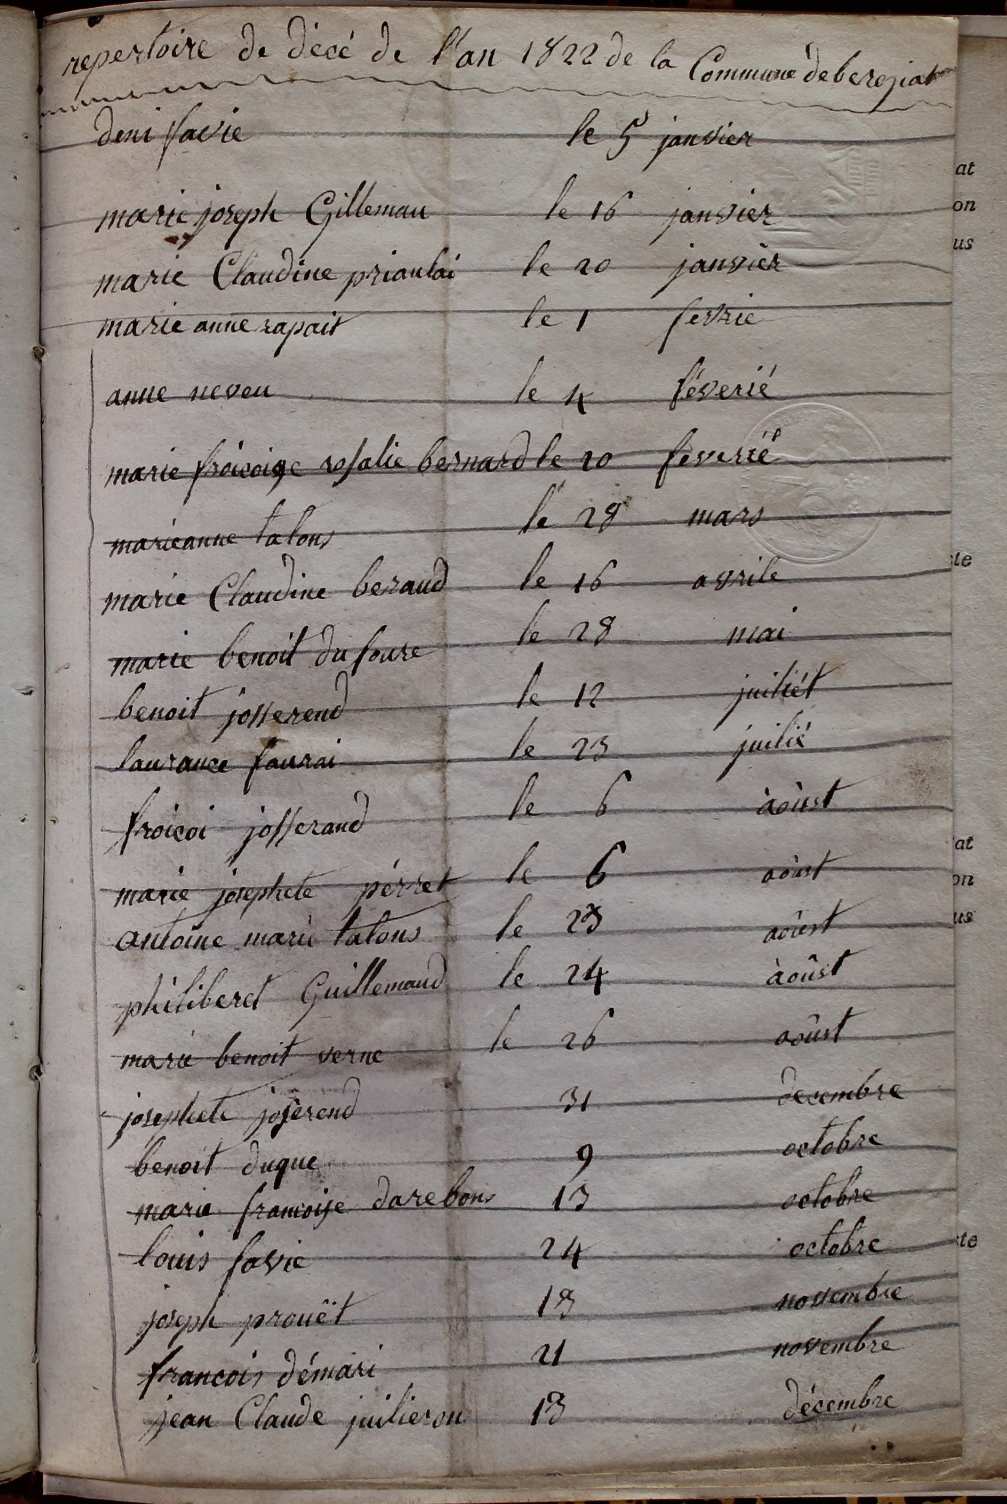 repertoire de décé de l'an 1822 de la Commune de bereziat
deni favie le 5 janvier
marie joseph Gilleman le 16 janvier
marie Claudine prianlai le 20 janvier
marie anne rapait le 1 fevrie
anne neveu le 4 féverié
marie froicoise rosalie bernard le 20 féverié
marieanne talons le 28 mars
marie Claudine beraud le 16 avrile
marie benoit dufoure le 28 mai
benoit josserend le 12 juiliét
laurance faurai le 23 juilié
froicoi josserand le 6 àoùst
marie josephete pérret le 6 aòust
antoine marie talons le 23 aoùst
philiberet Guillemaud le 24 àoûst
marie benoit verne le 26 aoûst
josephete joserend 31 decembre
benoit duque 9 octobre
marie francoise darebons 13 octobre
louis favie 24 octobre
joseph prouët 13 novembre
francois démari 21 novembre
jean Claude juilieron 13 décembre
at
on
us
te
at
on
us
te